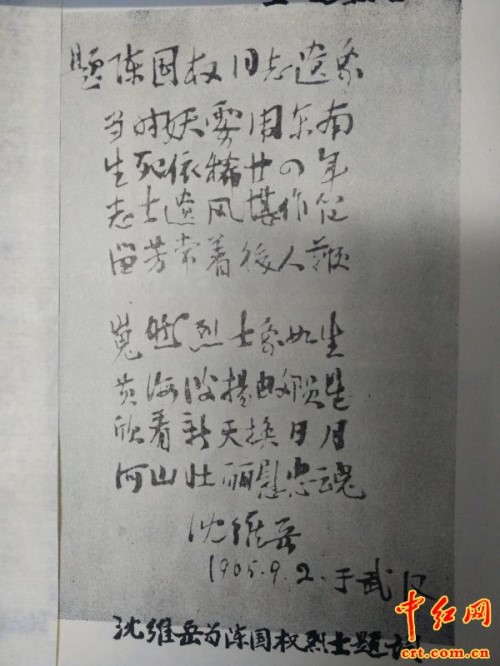 题陈国权同志遗象
当时妖雾
生死依稀廿四年
志士遗风堪作
留芳常着後人鞭
嵬然烈士象如生
黄海波扬
欣看新天换日月
河山壮丽慰忠魂
沈维岳
19 5.9.2.于武汉
沈维岳为陈国权烈士题
中红网
crt.com.cn